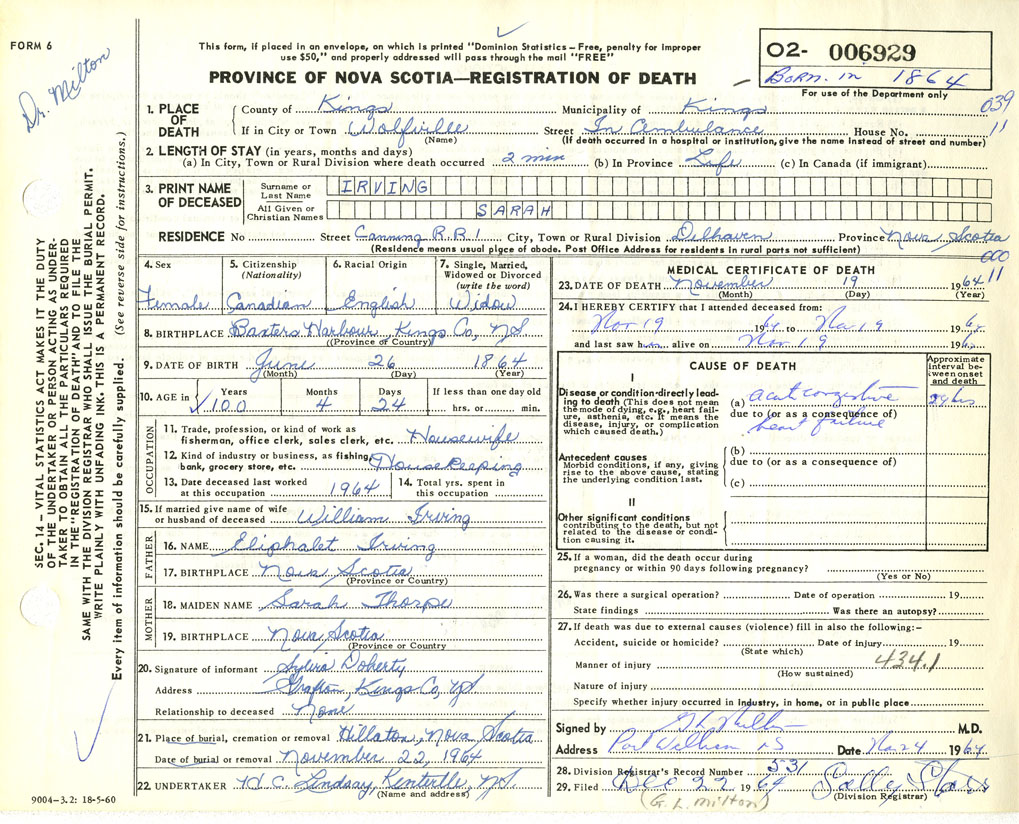 FORM 6
Dr. Milton
This form, if placed in an envelope, on which is printed "Dominion Statistics – Free, penalty for improper
use $50," and properly addressed will pass through the mail "FREE"
PROVINCE OF NOVA SCOTIA—REGISTRATION OF DEATH
02- 006929
Born in 1864
For use of the Department only
039
11
1. PLACE OF DEATH
County of Kings Municipality of Kings
If in City or Town Wolfville Street In Ambulance House No.
(Name) (If death occurred in a hospital or institution, give the name instead of street and number)
2. LENGTH OF STAY (in years, months and days)
(a) In City, Town or Rural Division where death occurred 2 min (b) In Province Life (c) In Canada (if immigrant)
3. PRINT NAME OF DECEASED
Surname or Last Name IRVING
All Given or Christian Names SARAH
RESIDENCE No Street Canning R.R.1 City, Town or Rural Division Delhaven Province Nova Scotia
(Residence means usual place of abode. Post Office Address for residents in rural parts not sufficient)
000
11
4. Sex Female
5. Citizenship (Nationality) Canadian
6. Racial Origin English
7. Single, Married, Widowed or Divorced (write the word) Widow
8. BIRTHPLACE Baxters Harbour, Kings Co, NS
(Province or Country)
9. DATE OF BIRTH June 26 1864
(Month) (Day) (Year)
10. AGE in Years 100 Months 4 Days 24 If less than one day old hrs. or min.
OCCUPATION
11. Trade, profession, or kind of work as fisherman, office clerk, sales clerk, etc. Housewife
12. Kind of industry or business, as fishing, bank, grocery store, etc. Housekeeping
13. Date deceased last worked at this occupation 1964
14. Total yrs. spent in this occupation
15. If married give name of wife or husband of deceased William Irving
FATHER
16. NAME Eliphalet Irving
17. BIRTHPLACE Nova Scotia
(Province or Country)
MOTHER
18. MAIDEN NAME Sarah Thorpe
19. BIRTHPLACE Nova Scotia
(Province or Country
20. Signature of informant Sylvia Doherty
Address Grafton, Kings Co, NS
Relationship to deceased None
21. Place of burial, cremation or removal Hillaton, Nova Scotia
Date of burial or removal November 22, 1964
22. UNDERTAKER H.C. Lindsay, Kentville, NS
(Name and address)
9004–3.2: 18-5-60
MEDICAL CERTIFICATE OF DEATH
23. DATE OF DEATH November 19 1964
(Month) (Day) (Year)
24. I HEREBY CERTIFY that I attended deceased from:
Nov 19 1964 to Nov 19 1964
and last saw h alive on Nov 19 196
CAUSE OF DEATH
Approximate interval between onset and death
I
Disease or condition directly leading to death (This does not mean the mode of dying, e.g., heart failure, asthenia, etc. It means the disease, injury, or complication which caused death.)
(a) acute congestive
due to (or as a consequence of)
heart failure
Antecedent causes
Morbid conditions, if any, giving rise to the above cause, stating the underlying condition last.
(b)
due to (or as a consequence of)
(c)
II
Other significant conditions
contributing to the death, but not related to the disease or condition causing it.
25. If a woman, did the death occur during
pregnancy or within 90 days following pregnancy?
(Yes or No)
26. Was there a surgical operation? Date of operation 19
State findings Was there an autopsy?
27. If death was due to external causes (violence) fill in also the following:–
Accident, suicide or homicide? Date of injury 19
(State which)
434.1
Manner of injury
(How sustained)
Nature of injury
Specify whether injury occurred in Industry, in home, or in public place
Signed by G L Milton M.D.
Address Port William NS Date Nov 24 1964
28. Division Registrar's Record Number 531
29. Filed Dec 22 1964
(Division Registrar)
(G. L. Milton)
SEC. 14 – VITAL STATISTICS ACT MAKES IT THE DUTY
OF THE UNDERTAKER OR PERSON ACTING AS UNDER-
TAKER TO OBTAIN ALL THE PARTICULARS REQUIRED
IN THE "REGISTRATION OF DEATH" AND TO FILE THE
SAME WITH THE DIVISION REGISTRAR WHO SHALL ISSUE THE BURIAL PERMIT.
WRITE PLAINLY WITH UNFADING INK. THIS IS A PERMANENT RECORD.
Every item of information should be carefully supplied. (See reverse side for instructions.)